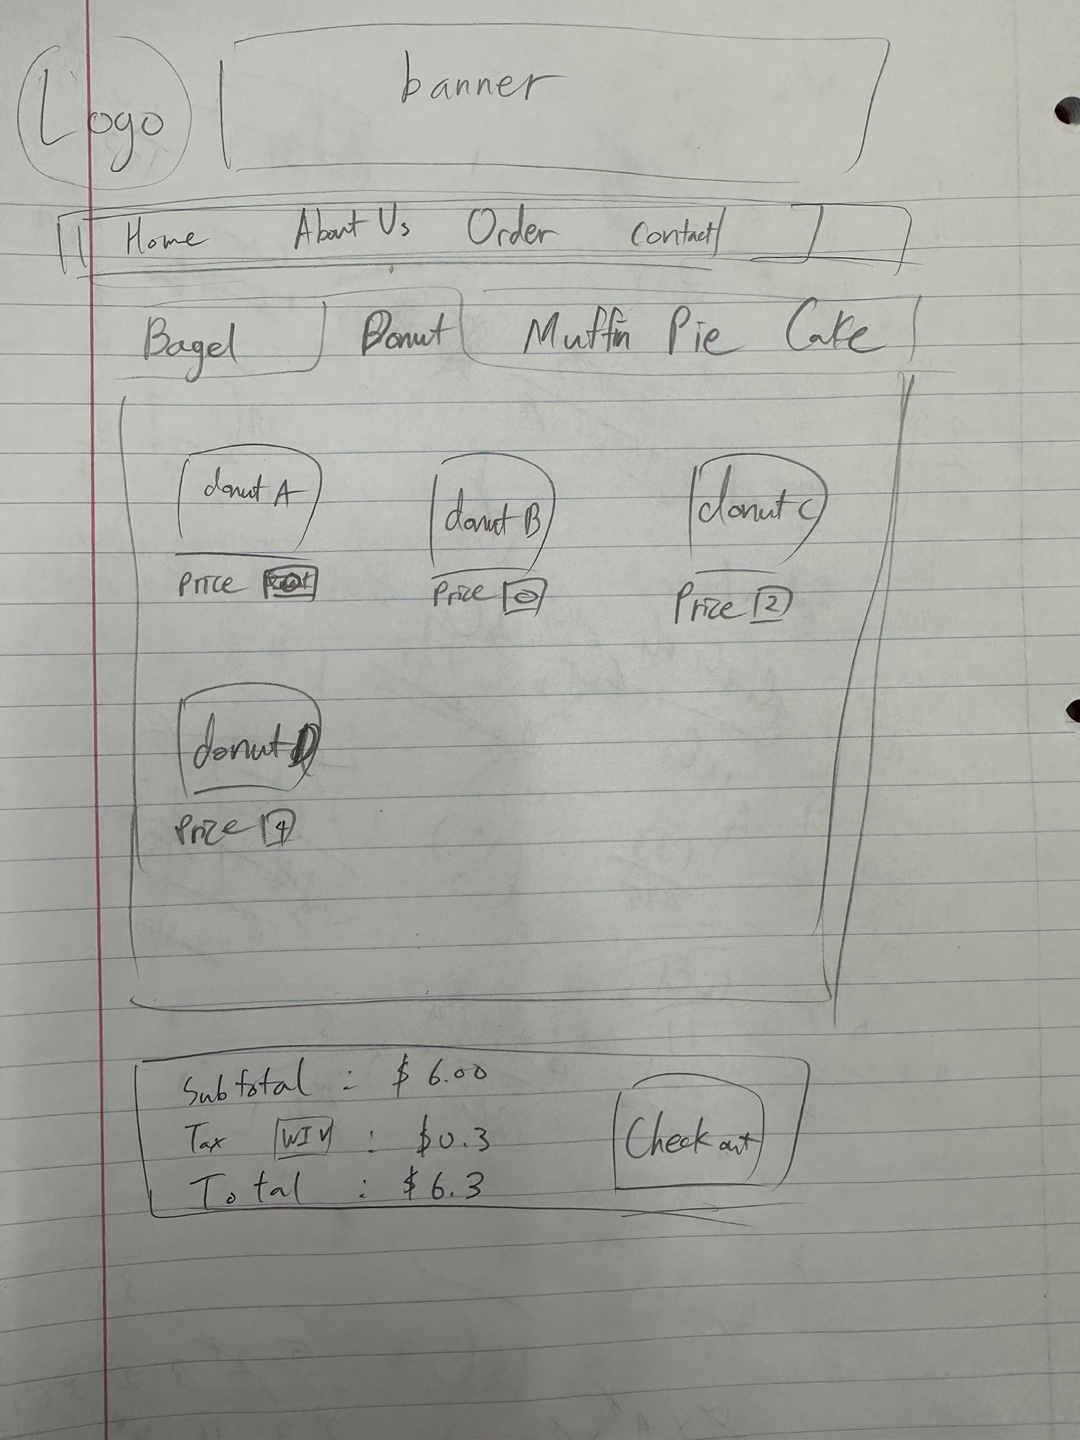 Logo
banner
Home About Us Order Contact
Bagel Donut Muffin Pie Cake
donut A donut B donut C
Price
Price 0
Price 2
donut D
Price 4
Subtotal : $ 6.00
Tax WI : $0.3
Total : $ 6.3
Check out